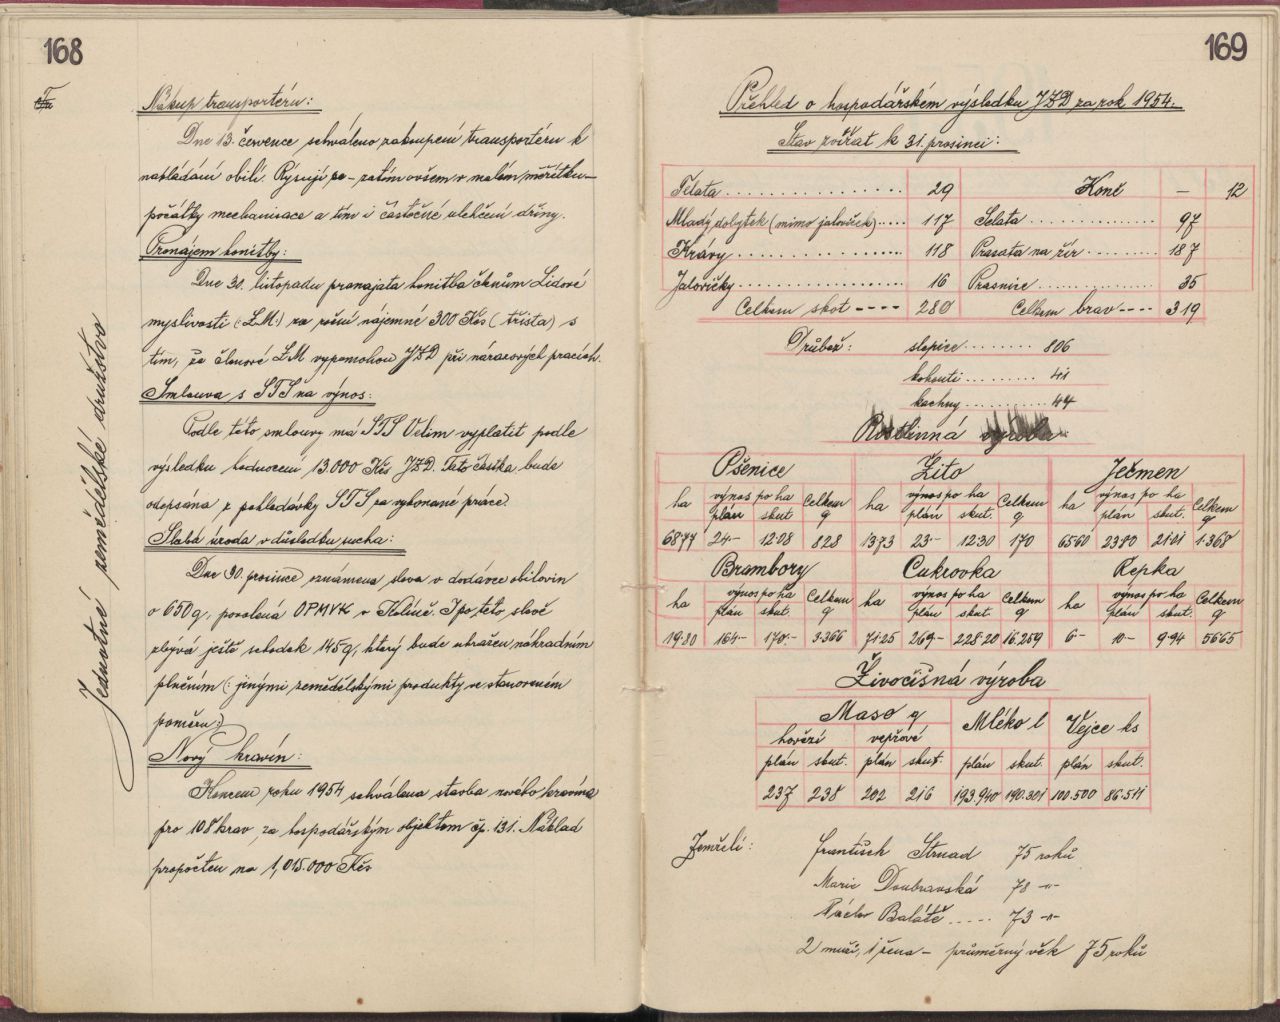 168
Jednotné zemědělské družstvo
Nákup transportéru:
Dne 13. července schváleno zakoupení transportéru k
nakládání obilí. Rýsují se - zatím ovšem v malém měřítku -
počátky mechanisace a tím i částečné ulehčení dřiny.
Pronájem honitby:
Dne 30. listopadu pronajata honitba členům Lidové
myslivosti (: L.M.:) za roční nájemné 300 Kčs (třista) s
tím, že členové L.M vypomohou JZD při nárazových pracích.
Smlouva s STS na výnos:
Podle této smlouvy má STS Velim vyplatit podle
výsledku hodnocení 13.000 Kčs JZD. Tato částka bude
odepsána z pohledávky STS za vykonané práce.
Slabá úroda v důsledku sucha:
Dne 30. prosince oznámena sleva v dodávce obilovin
o 650 q, povolená OPMVK v Kolíně. I po této slevě
zbývá ještě schodek 145 q, který bude uhrazen náhradním
plněním (: jinými zemědělskými produkty ve stanoveném
poměru :)
Nový kravín:
Koncem roku 1954 schválena stavba nového kravína
pro 108 krav, za hospodářským objektem čp. 131. Náklad
propočten na 1,015.000 Kčs
169
Přehled o hospodářském výsledku JZD za rok 1954.
Stav zvířat k 31. prosinci:
Telata .................. 29 Koně - 12
Mladý dobytek (mimo jaloviček) .... 117 Selata .................. 97
Krávy .................. 118 Prasata na žír .......... 187
Jalovičky .................. 16 Prasnice .................. 35
Celkem skot ---- 280 Celkem brav ---- 319
Drůbež: slepice ........ 806
kohouti ......... 41
kachny .......... 44
Rostlinná výroba
Pšenice Žito Ječmen
ha výnos po ha Celkem q ha výnos po ha Celkem q ha výnos po ha Celkem q
plán skut plán skut. plán skut.
68·77 24·- 12·08 828 13·73 23·- 12·30 170 65·60 23·80 21·01 1·368
Brambory Cukrovka Řepka
ha výnos po ha Celkem q ha výnos po ha Celkem q ha výnos po ha Celkem q
plán skut. plán skut. plán skut.
19·80 164·- 170·- 3·366 71·25 269·- 228·20 16.259 6·- 10·- 9·94 56·65
Živočišná výroba
Maso q Mléko l Vejce ks
hovězí vepřové
plán skut. plán skut. plán skut. plán skut.
237 238 202 216 193.940 190.301 100.500 86.511
Zemřelí: František Strnad 75 roků
Marie Doubravská 78 -"-
Václav Balátě ..... 73 -"-
2 muži, 1 žena - průměrný věk 75 roků